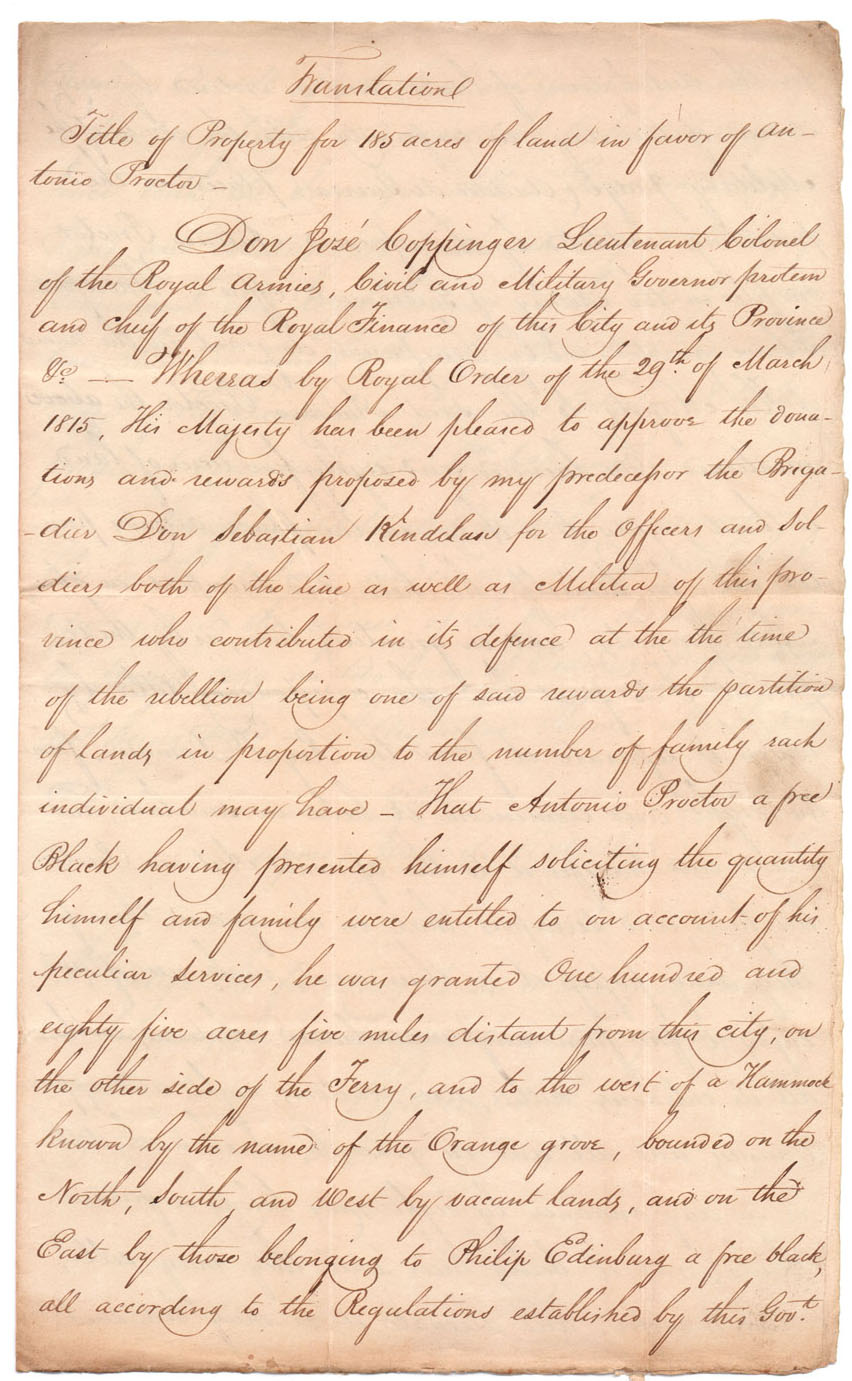 Translation
Title of Property for 185 acres of land in favor of An-
tonio Proctor -
Don José Coppinger Lieutenant Colonel
of the Royal Armies, Civil and Military Governor protem
and cheif of the Royal Finance of this City and its Province
&c. — Whereas by Royal Order of the 29th. of March
1815, His Majesty has been pleased to approve the dona-
tions and rewards proposed by my predecessor the Briga-
-dier Don Sebastian Kindelan for the Officers and Sol-
diers both of the line as well as Militia of this pro-
vince who contributed in its defence at the the time
of the rebellion being one of said rewards the partition
of lands in proportion to the number of family each
individual may have - That Antonio Proctor a free
Black having presented himself soliciting the quantity
himself and family were entitled to on account of his
peculiar services, he was granted One hundred and
eighty five acres five miles distant from this city, on
the other side of the Ferry, and to the west of a Hammock
known by the name of the Orange grove, bounded on the
North, South, and West by vacant lands, and on the
East by those belonging to Philip Edinburg a free black,
all according to the Regulations established by this Govt.